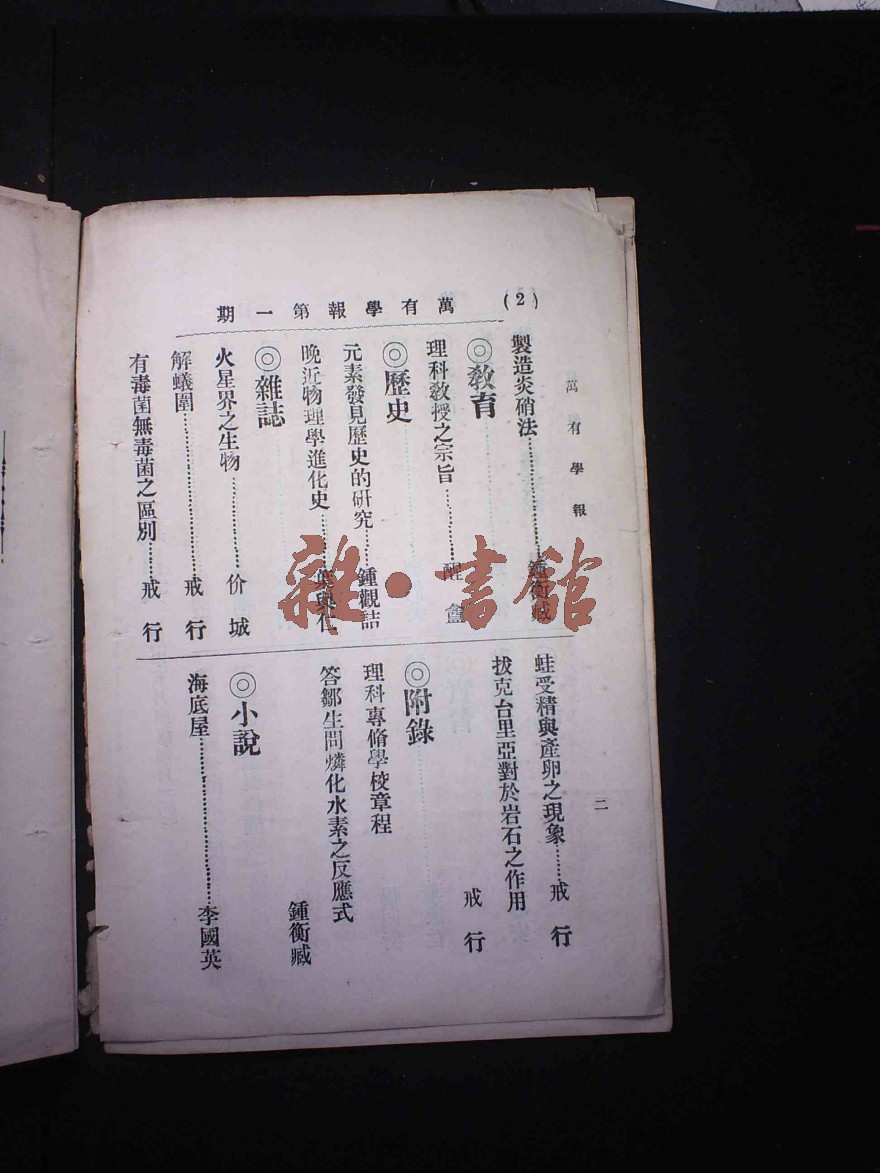 萬有學報
二
(2)
萬有學報第一期
製造炎硝法……鍾衡臧
◎教育
理科教授之宗旨……醒盦
◎歷史
元素發見歷史的研究……鍾觀誥
晚近物理學進化史……葉與仁
◎雜誌
火星界之生物……价城
解蟻圍……戒行
有毒菌無毒菌之區別……戒行
蛙受精與產卵之現象……戒行
拔克台里亞對於岩石之作用
戒行
◎附錄
理科專脩學校章程
答鄒生問燐化水素之反應式
鍾衡臧
◎小說
海底屋……李國英
雜·書館